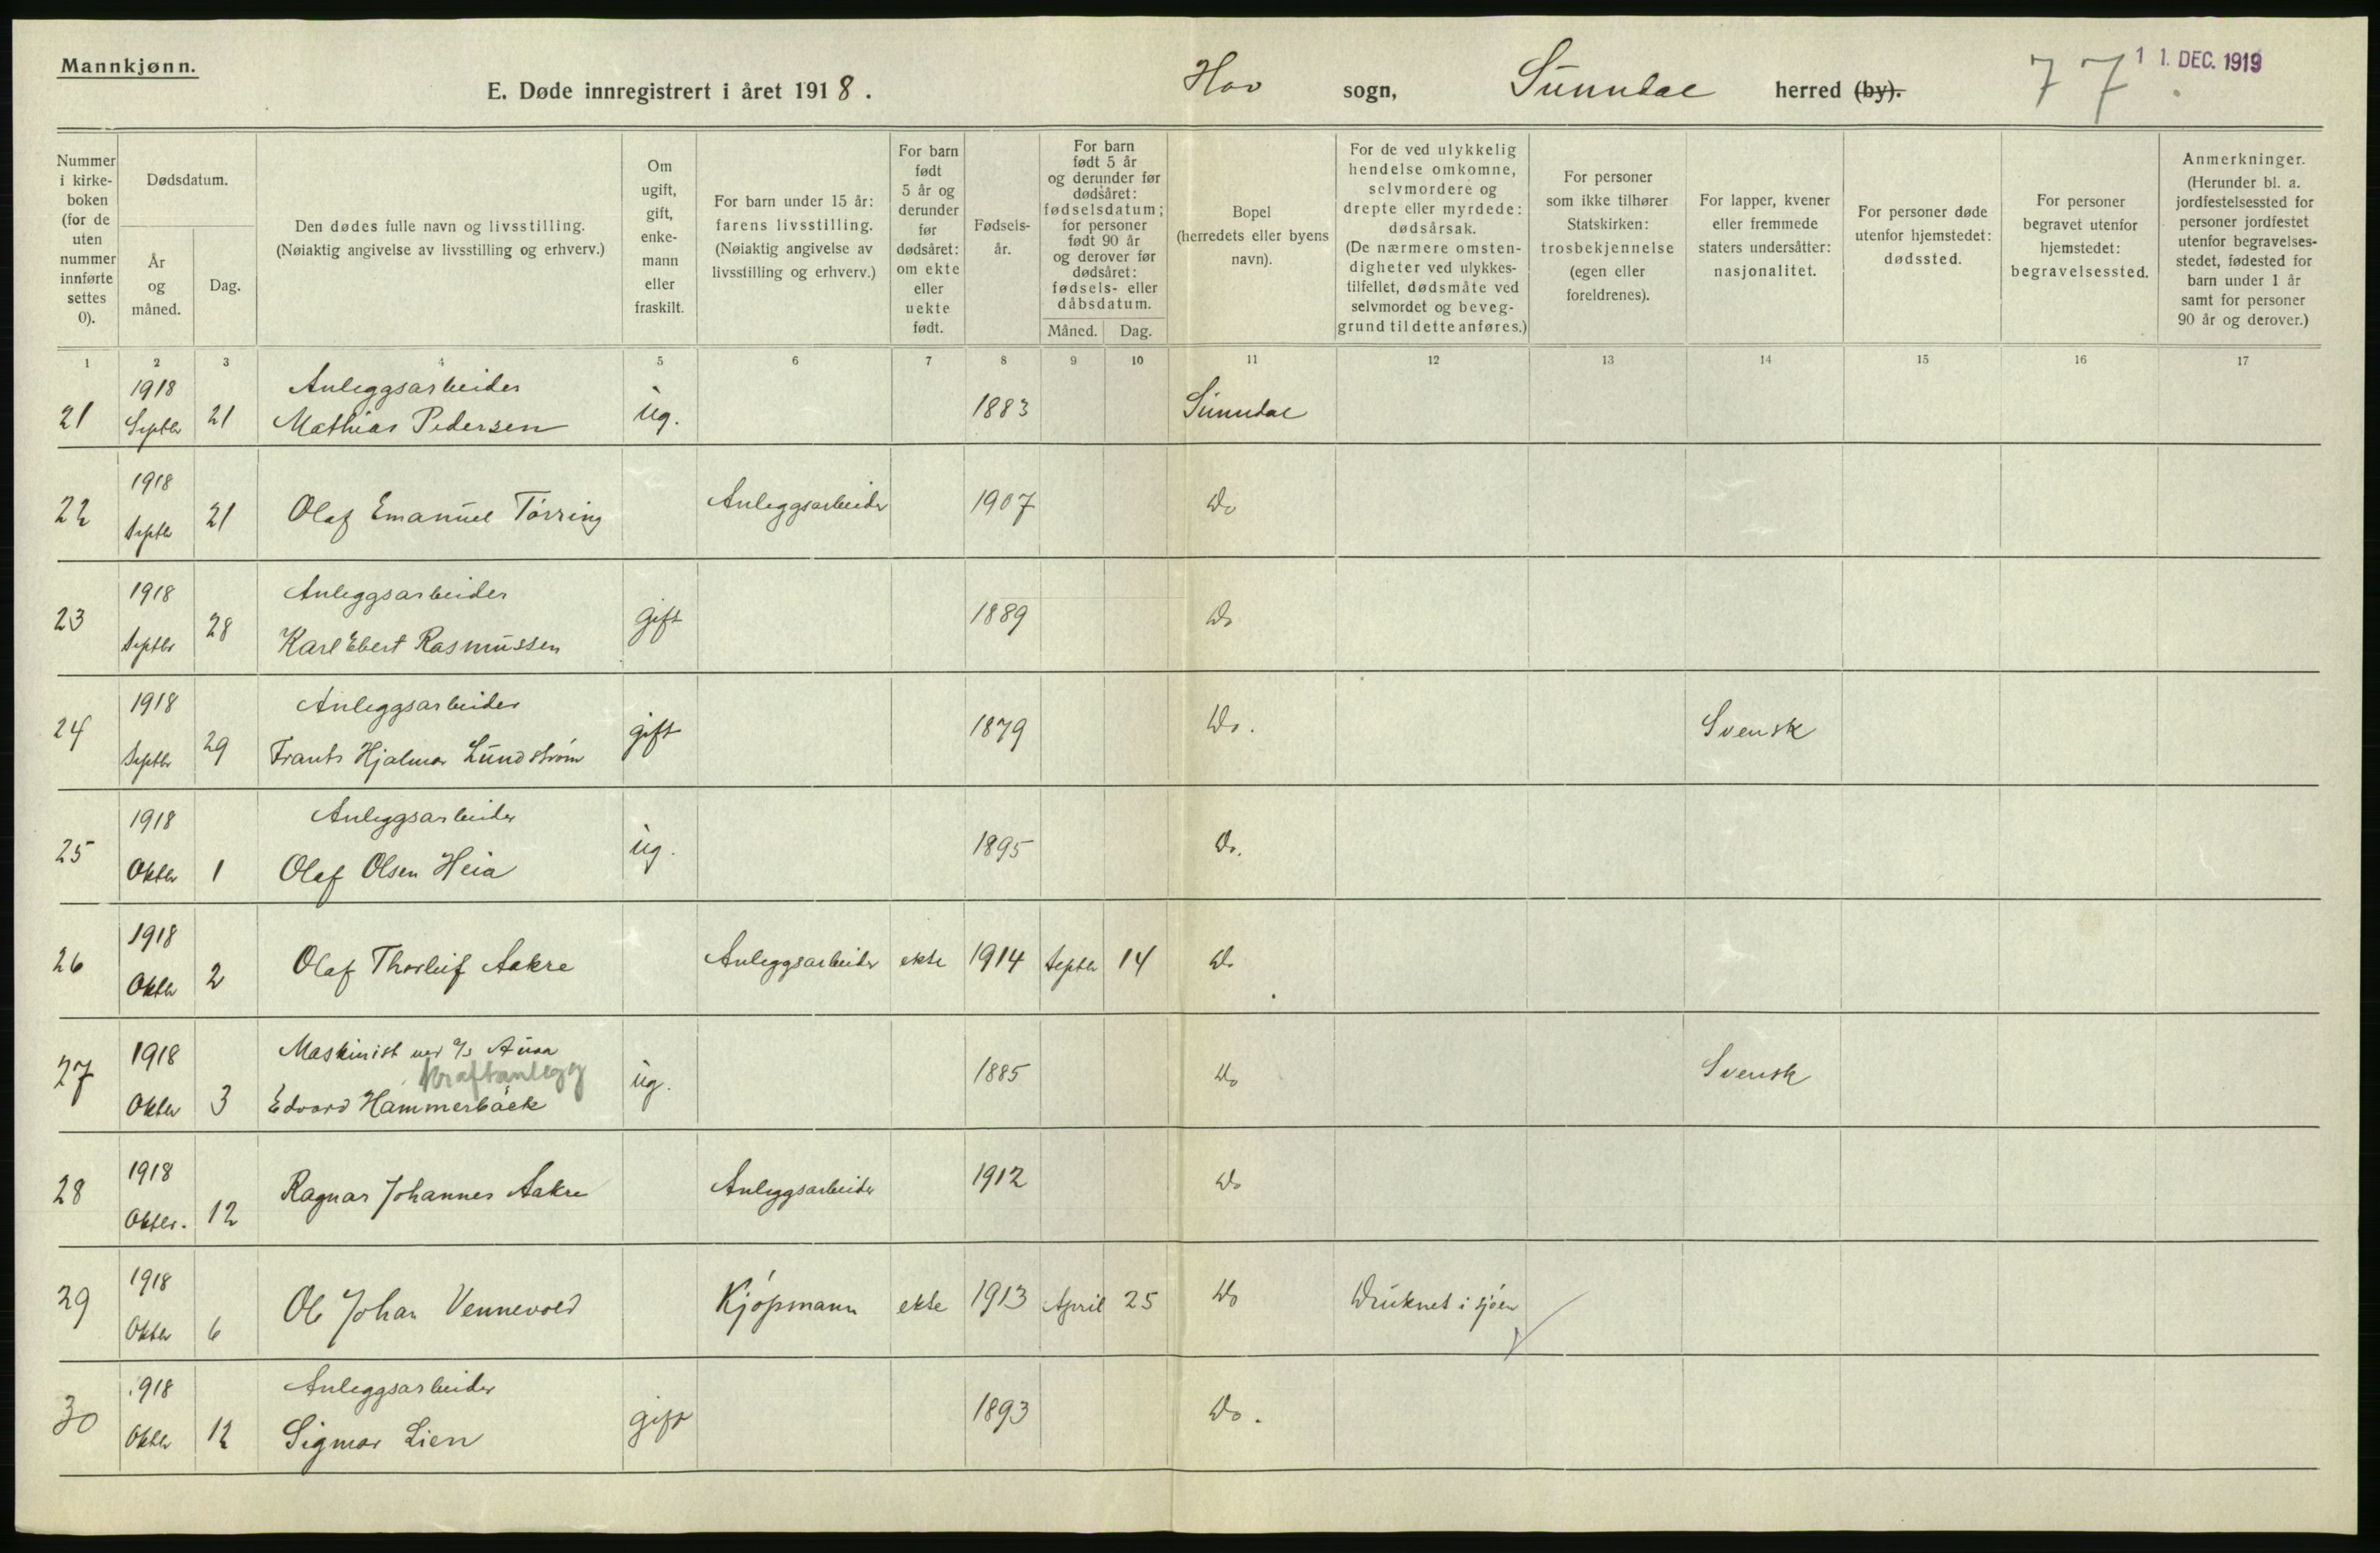 Mannkjønn.
E. Døde innregistrert i året 1918. Hov sogn, Sunndal herred (by).
77.
11. DEC. 1919
Nummer i kirke-boken (for de uten nummer innførte settes 0).
Dødsdatum.
År og måned.
Dag.
Den dødes fulle navn og livsstilling.
(Nøiaktig angivelse av livsstilling og erhverv.)
Om ugift, gift, enke-mann eller fraskilt.
For barn under 15 år: farens livsstilling. (Nøiaktig angivelse av livsstilling og erhverv.)
For barn født 5 år og derunder før dødsåret: om ekte eller uekte født.
Fødsels-år.
For barn født 5 år og derunder før dødsåret: fødselsdatum; for personer født 90 år og derover før dødsåret: fødsels- eller dåbsdatum.
Måned. Dag.
Bopel (herredets eller byens navn).
For de ved ulykkelig hendelse omkomne, selvmordere og drepte eller myrdede: dødsårsak. (De nærmere omsten-digheter ved ulykkes-tilfellet, dødsmåte ved selvmordet og beveg-grund til dette anføres.)
For personer som ikke tilhører Statskirken: trosbekjennelse (egen eller foreldrenes).
For lapper, kvener eller fremmede staters undersåtter: nasjonalitet.
For personer døde utenfor hjemstedet: dødssted.
For personer begravet utenfor hjemstedet: begravelsessted.
Anmerkninger. (Herunder bl. a. jordfestelsessted for personer jordfestet utenfor begravelses-stedet, fødested for barn under 1 år samt for personer 90 år og derover.)
1 2 3 4 5 6 7 8 9 10 11 12 13 14 15 16 17
1918 Anleggsarbeider
21 Septbr 21 Mathias Pedersen ug. 1883 Sunndal
1918
22 Septbr 21 Olaf Emanuel Tørring Anleggsarbeider 1907 Do
1918 Anleggsarbeider
23 Septbr 28 Karl Ebert Rasmussen gift 1889 Do
1918 Anleggsarbeider
24 Septbr 29 Frants Hjalmar Lundstrøm gift 1879 Do. Svensk
1918 Anleggsarbeider
25 Oktbr 1 Olaf Olsen Heia ug. 1895 Do.
1918
26 Oktbr 2 Olaf Thorleif Aakre Anleggsarbeider ekte 1914 Septbr 14 Do
1918 Maskinist ved A/s Aura
Kraftanlegg
27 Oktbr 3 Edvard Hammerbäck ug. 1885 Do Svensk
1918
28 Oktbr. 12 Ragnar Johannes Aakre Anleggsarbeider 1912 Do
1918
29 Oktbr 6 Ole Johan Vennevold Kjøpmann ekte 1913 April 25 Do Druknet i sjøen
1918 Anleggsarbeider
30 Oktbr 12 Sigmar Lien gift 1893 Do.